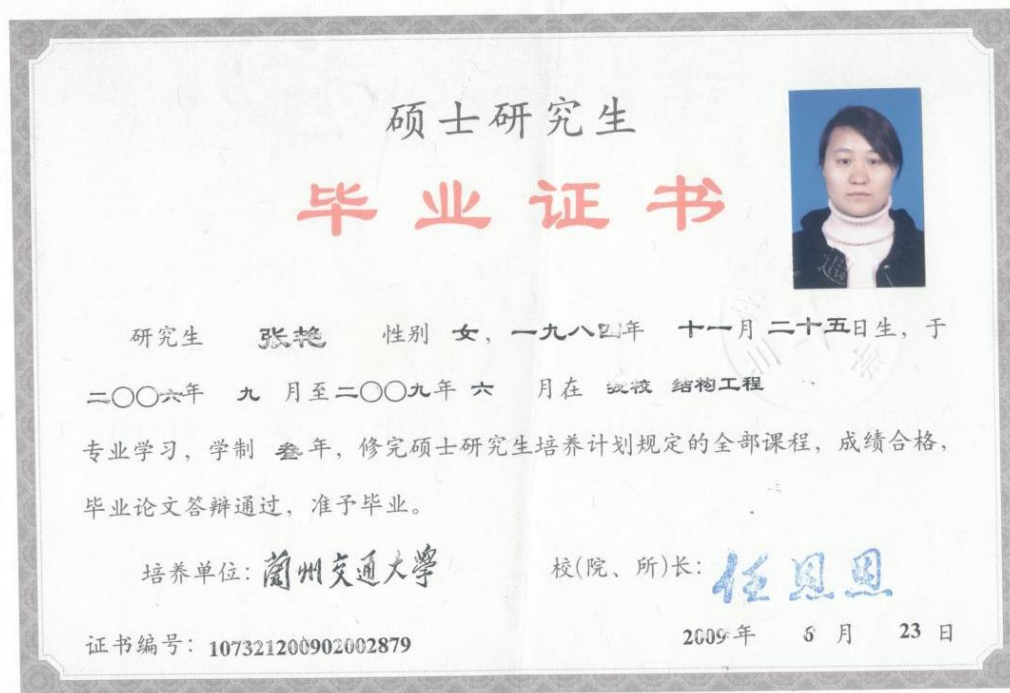 硕士研究生
毕业证书
研究生 张艳 性别 女，一九八四年 十一月二十五日生，于
二〇〇六年 九 月至二〇〇九年 六 月在 我校 结构工程
专业学习，学制 叁年，修完硕士研究生培养计划规定的全部课程，成绩合格，
毕业论文答辩通过，准予毕业。
培养单位：蘭州交通大學 校(院、所)长：任恩恩
证书编号：107321200902002879 2009年 6 月 23 日